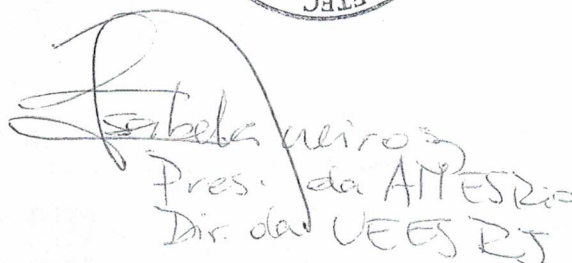 ETEC
Isabela Queiroz
Pres. da AMES Rio
Dir. da UEES RJ